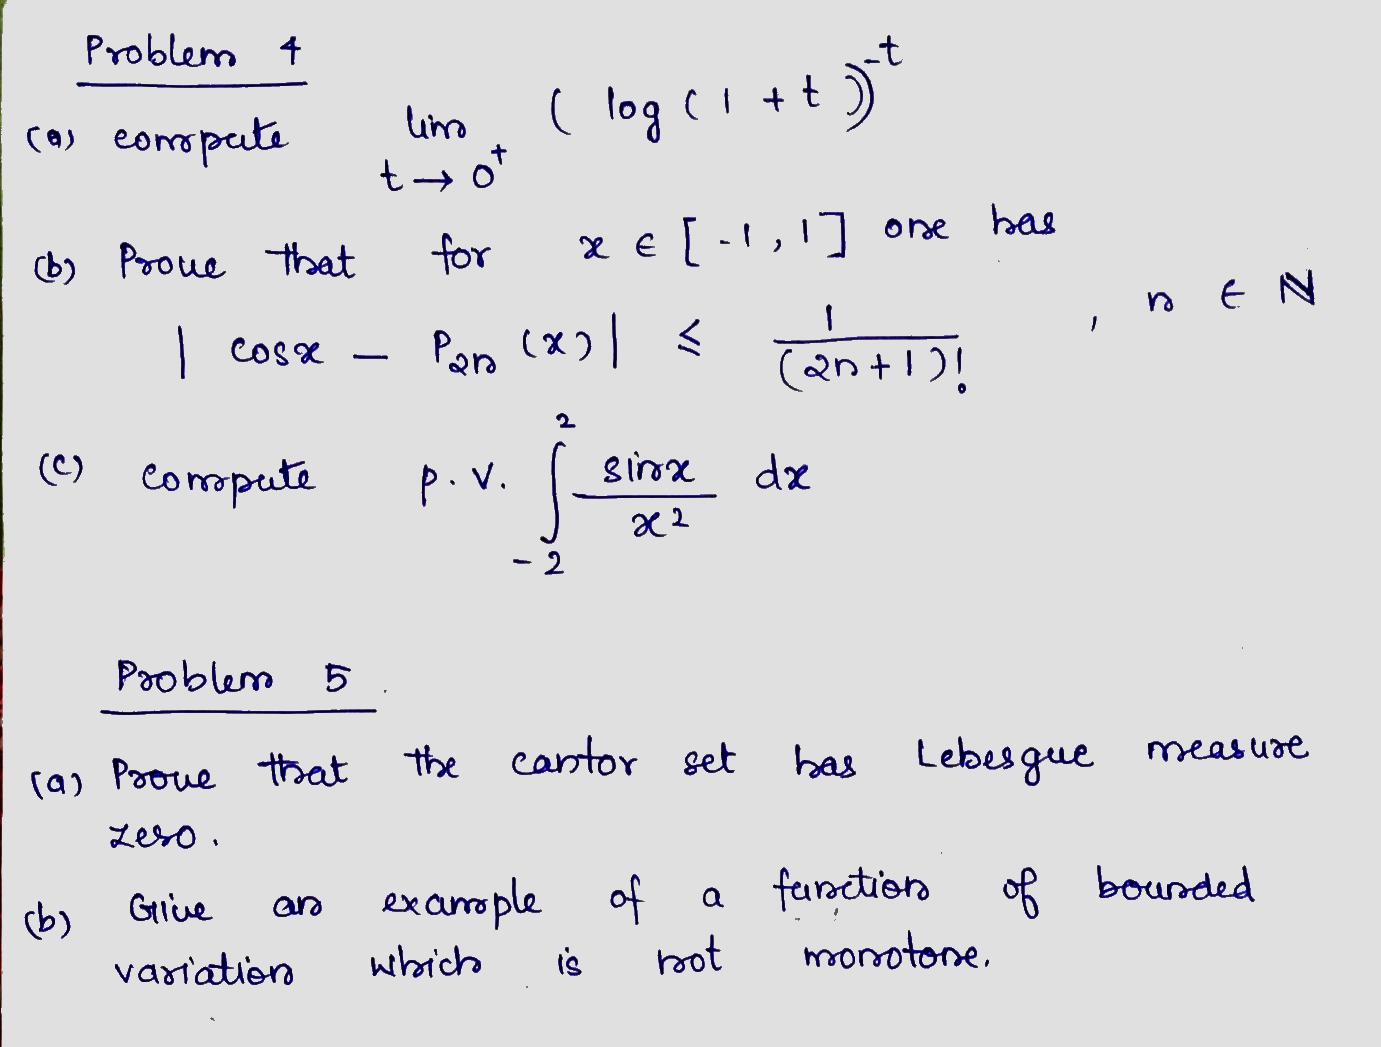 Problem 4
(a) compute lim t → 0⁺ ( log ( 1 + t ))⁻ᵗ
(b) Prove that for x ∈ [ -1 , 1 ] one has
| cosx − P₂ₙ (x) | ≤ 1 / (2n+1)! , n ∈ ℕ
(c) compute p.v. ∫₋₂² sinx / x² dx
Problem 5
(a) Prove that the cantor set has Lebesgue measure
zero.
(b) Give an example of a function of bounded
variation which is not monotone.